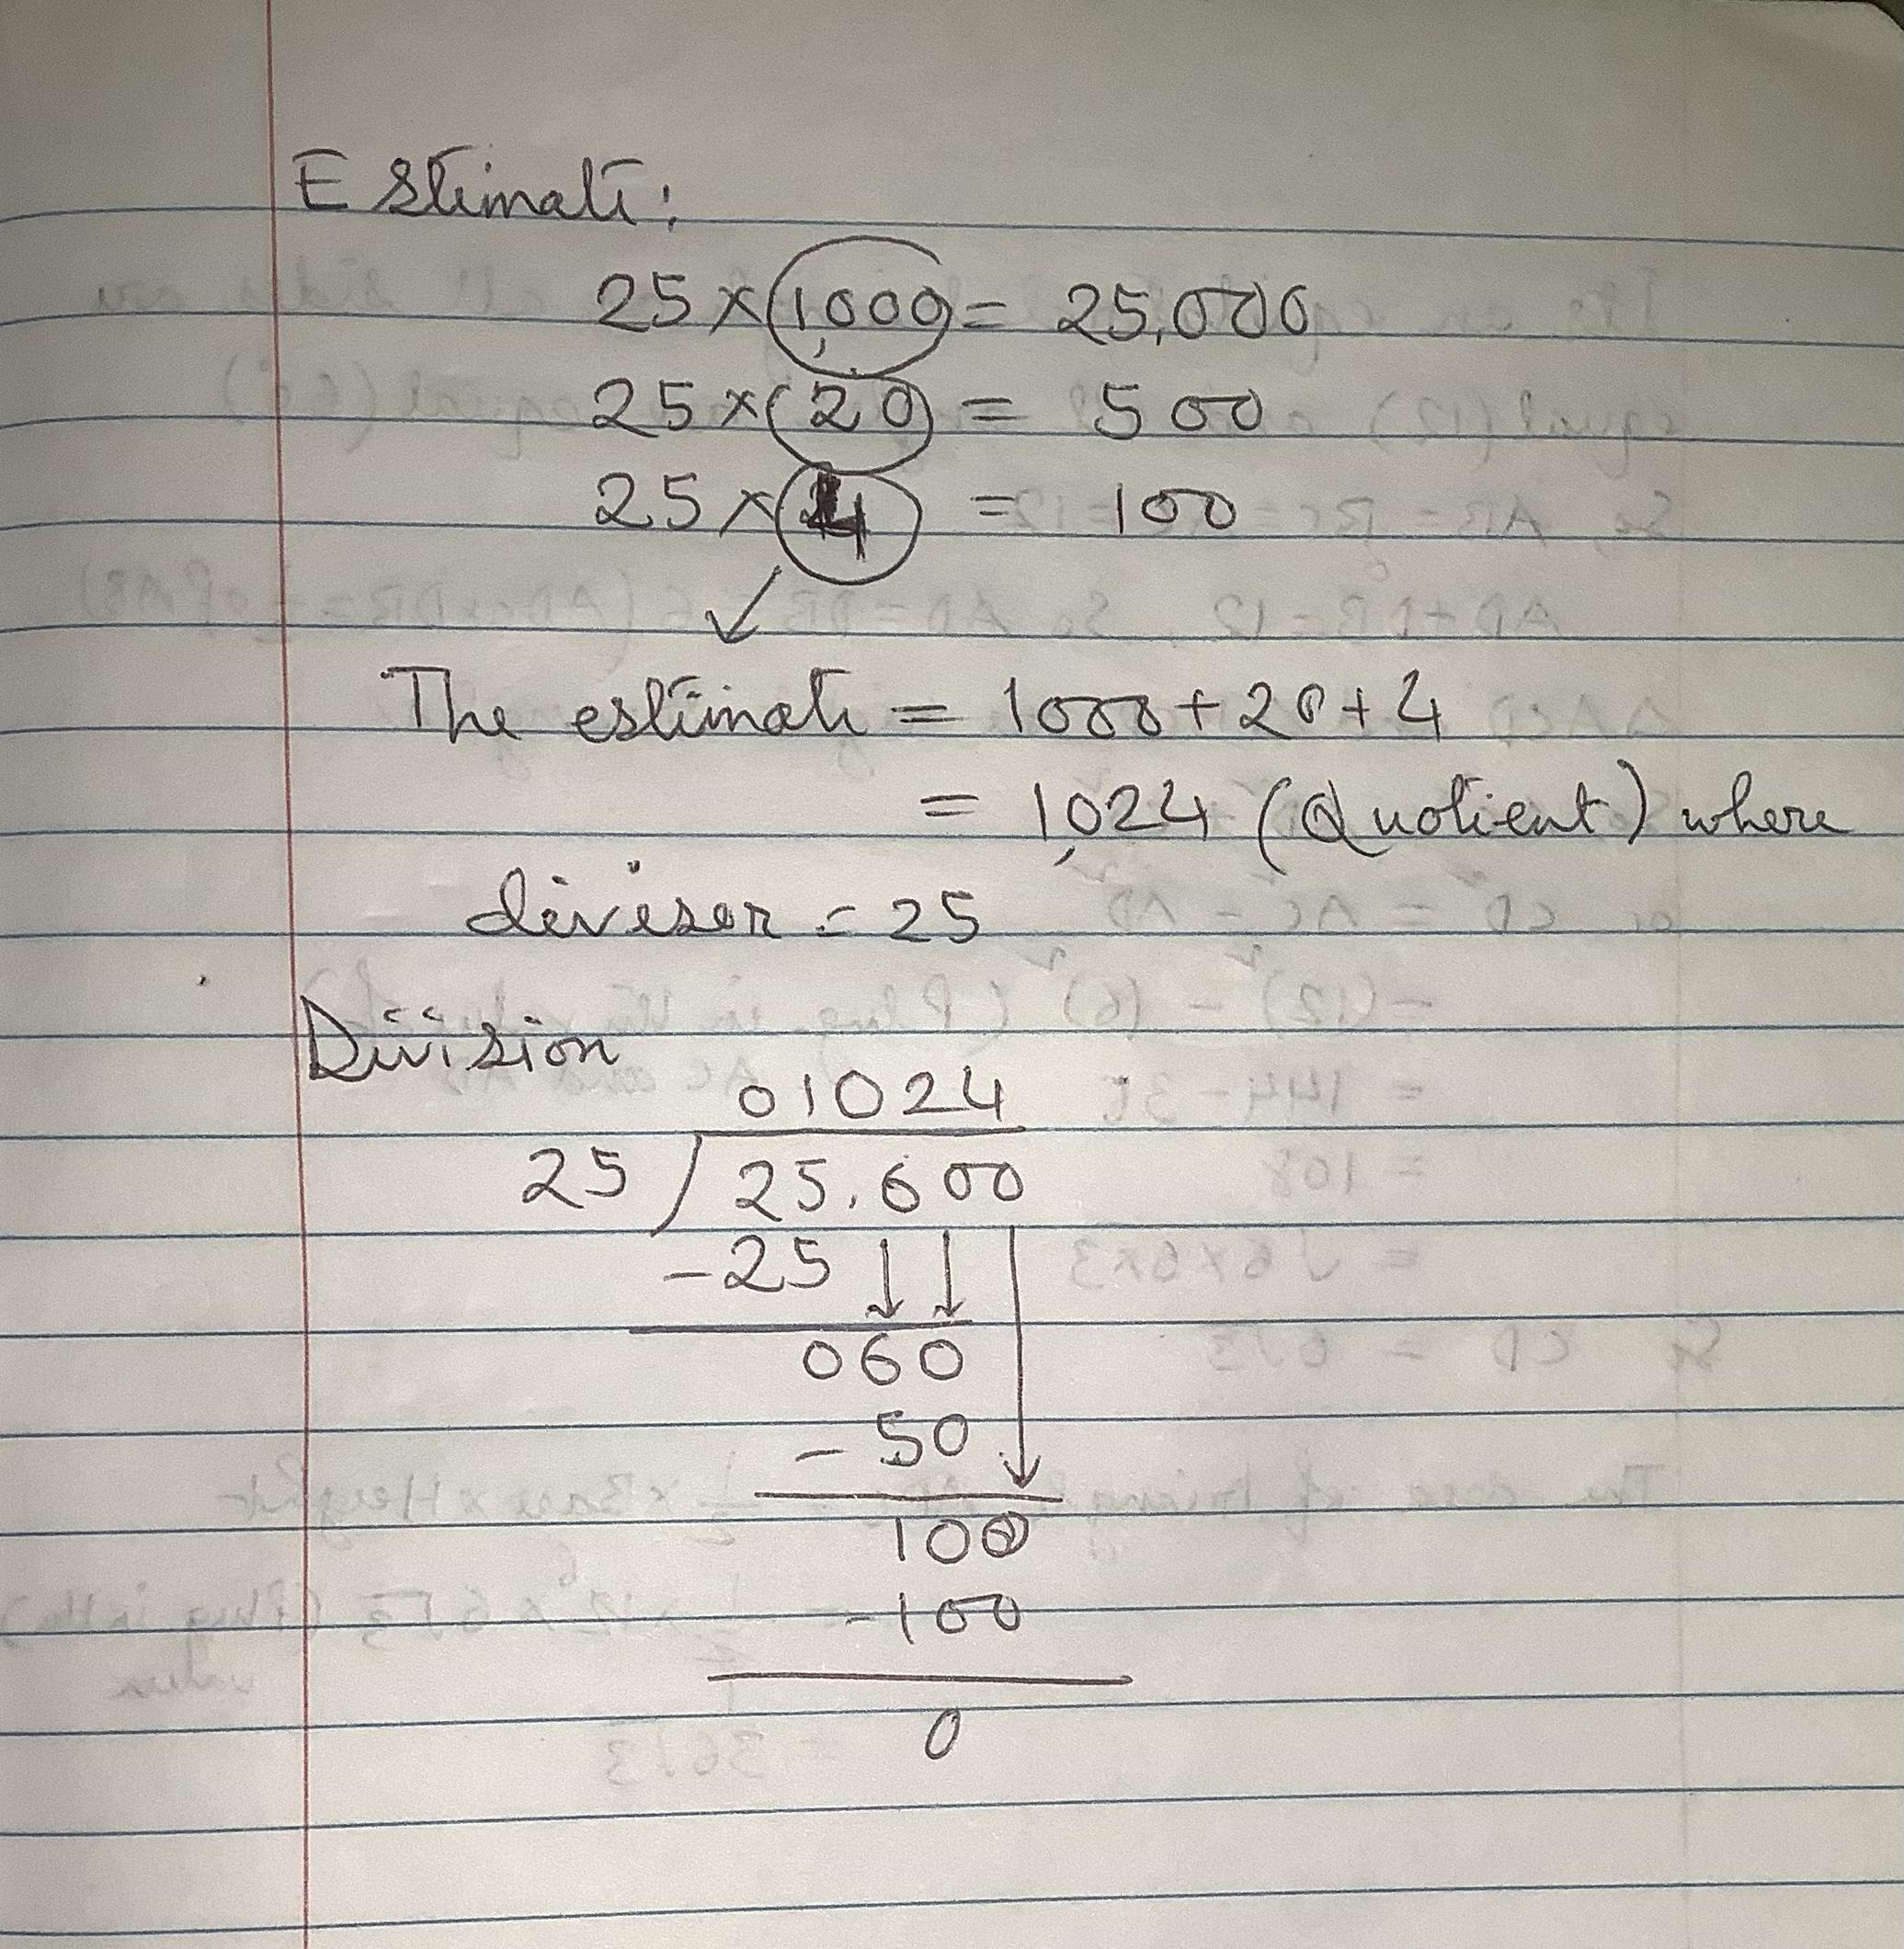 Estimate:
25 × 1,000 = 25,000
25 × 20 = 500
25 × 4 = 100
The estimate = 1000 + 20 + 4
= 1,024 (Quotient) where
diviser = 25
Division
01024
25 25,600
-25
060
- 50
100
-100
0